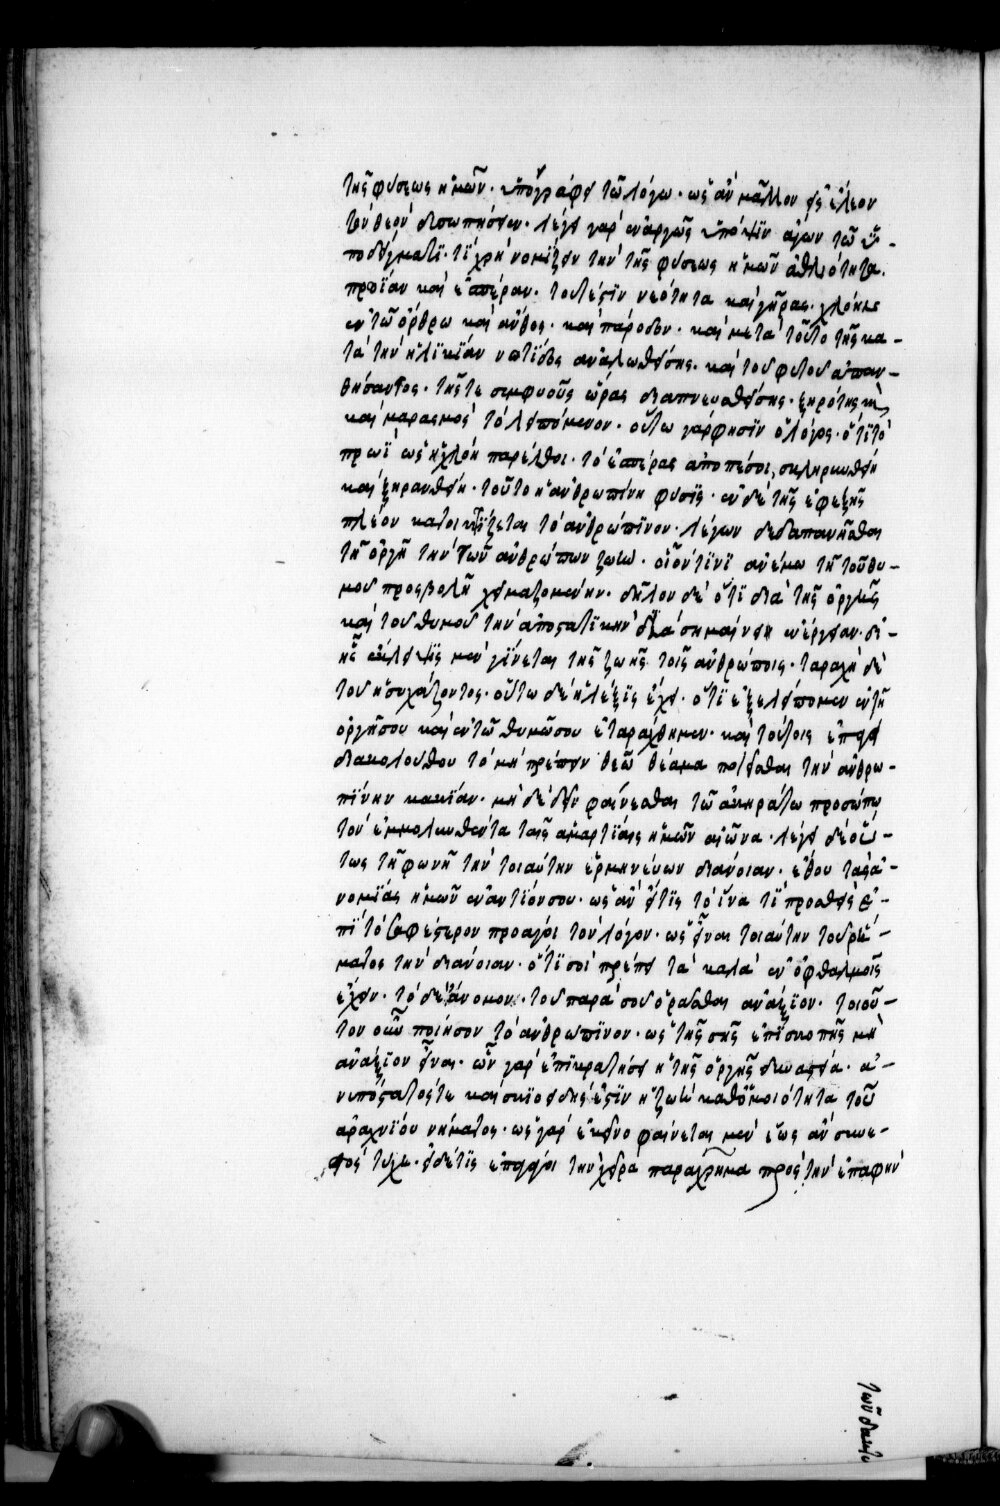 τῆς φύσεως ἡμῶν· ὑπογράφει τῶ λόγω· ὡς ἂν μᾶλλον εἰς ἔλεον
τὸν θεὸν δισωπήσειεν· λέγει γὰρ ἐναργῶς ὑπόψϊν ἀγων τῶ ὑ-
ποδείγματϊ· τί χρὴ νομίζειν τὴν τῆς φύσεως ἡμῶν ἀθλιότητα.
πρωΐαν καὶ ἑσπέραν· τουτέστϊν νεότητα καὶ γῆρας· χλόην τε
ἐν τῶ ὄρθρω καὶ ἄνθος· καὶ πάροδον· καὶ μετὰ τοῦτο τῆς κα-
τὰ τὴν ἡλϊκΐαν νοτΐδος ἀναλωθείσης· καὶ του φυτοῦ ἀπαν-
θήσαντος· τῆς τε συμφυοῦς ὥρας διαπνευσθείσης· ξηρότης
καὶ μαρασμὸς τὸ λειπόμενον· οὕτω γάρ φησϊν ὁ λόγος· ὅτϊ τὸ
πρωῒ ὡς ἡ χλόη παρέλθοι· τὸ ἑσπέρας ἀποπέσοι, σκληρυνθείη
καὶ ξηρανθείη· τοῦτο ἡ ἀνθρωπΐνη φυσϊς· ἐν δὲ τῆς ἐφεξῆς
πλέον κατοικτΐζεται τὸ ἀνθρώπϊνον· λέγων δεδαπανῆσθαι
τῆ ὀργῆ τὴν τῶν ἀνθρώπων ζωὴν· οἷόν τϊνϊ ἀνέμω τῆ τοῦ θυ-
μοῦ προσβολῆ χειμαζομένην· δῆλον δὲ ὅτϊ δϊὰ τῆς ὀργῆς
καὶ τοῦ θυμοῦ τὴν ἀποστατϊκὴν διασημαίνει ἐνέργειαν· δι-
ῆς ἔκλειψϊς μὲν γΐνεται τῆς ζωῆς τοῖς ἀνθρώποις· ταραχὴ δὲ
τοῦ ἡσυχάζοντος· οὕτω δὲ ἡ λέξϊς ἔχει· ὅτϊ ἐξελείπομεν ἐν τῆ
ὀργῆ σου καὶ ἐν τῶ θυμῶ σου ἐταράχθημεν· καὶ τούτοις ἐπάγει
διακολούθου τὸ μὴ πρέπειν θεῶ θέαμα ποιεῖσθαι τὴν ἀνθρω-
πΐνην κακΐαν· μὴ δὲ δεῖν φαίνεσθαι τῶ ἀκηράτω προσώπω
τὸν ἐμμολυνθέντα ταῖς ἁμαρτΐαις ἡμῶν αἰῶνα· λέγει δὲ οὕ-
τως τῆ φωνῆ τὴν τοιαύτην ἑρμηνεύων διάνοιαν· ἔθου τὰς ἀ-
νομΐας ἡμῶν ἐναντΐον σου· ὡς ἂν εἴ τϊς τὸ ἵνα τΐ προσθεὶς ἐ-
πΐ τὸ σαφέστερον προαγάγοι τὸν λόγον· ὡς εἶναι τοιαύτην τοῦ ῥή-
ματος τὴν διάνοιαν· ὅτϊ σοὶ πρέπει τὰ καλὰ ἐν ὀφθαλμοῖς
ἔχειν· τὸ δὲ ἄνομον· τοῦ παρὰ σοῦ ὁρᾶσθαι ἀνάξϊον· τοιοῦ-
τον οὖν ποίησον τὸ ἀνθρώπϊνον· ὡς τῆς σῆς ἐπϊσκοπῆς μὴ
ἀνάξϊον εἶναι· νῦν γὰρ ἐπϊκρατήσει ἡ τῆς ὀργῆς δυναστεία· ἀ-
νυπόστατός τε καὶ σκϊοειδής ἐστϊν ἡ ζωὴ καθ' ὁμοιότητα τοῦ
ἀραχνΐου νήματος· ὡς γὰρ ἐκεῖνο φαίνεται μὲν ἕως ἂν συνε-
στὸς τύχη· εἰ δέ τϊς ἐπαγάγοι τὴν χεῖρα παραχρῆμα πρὸς τὴν ἐπαφὴν